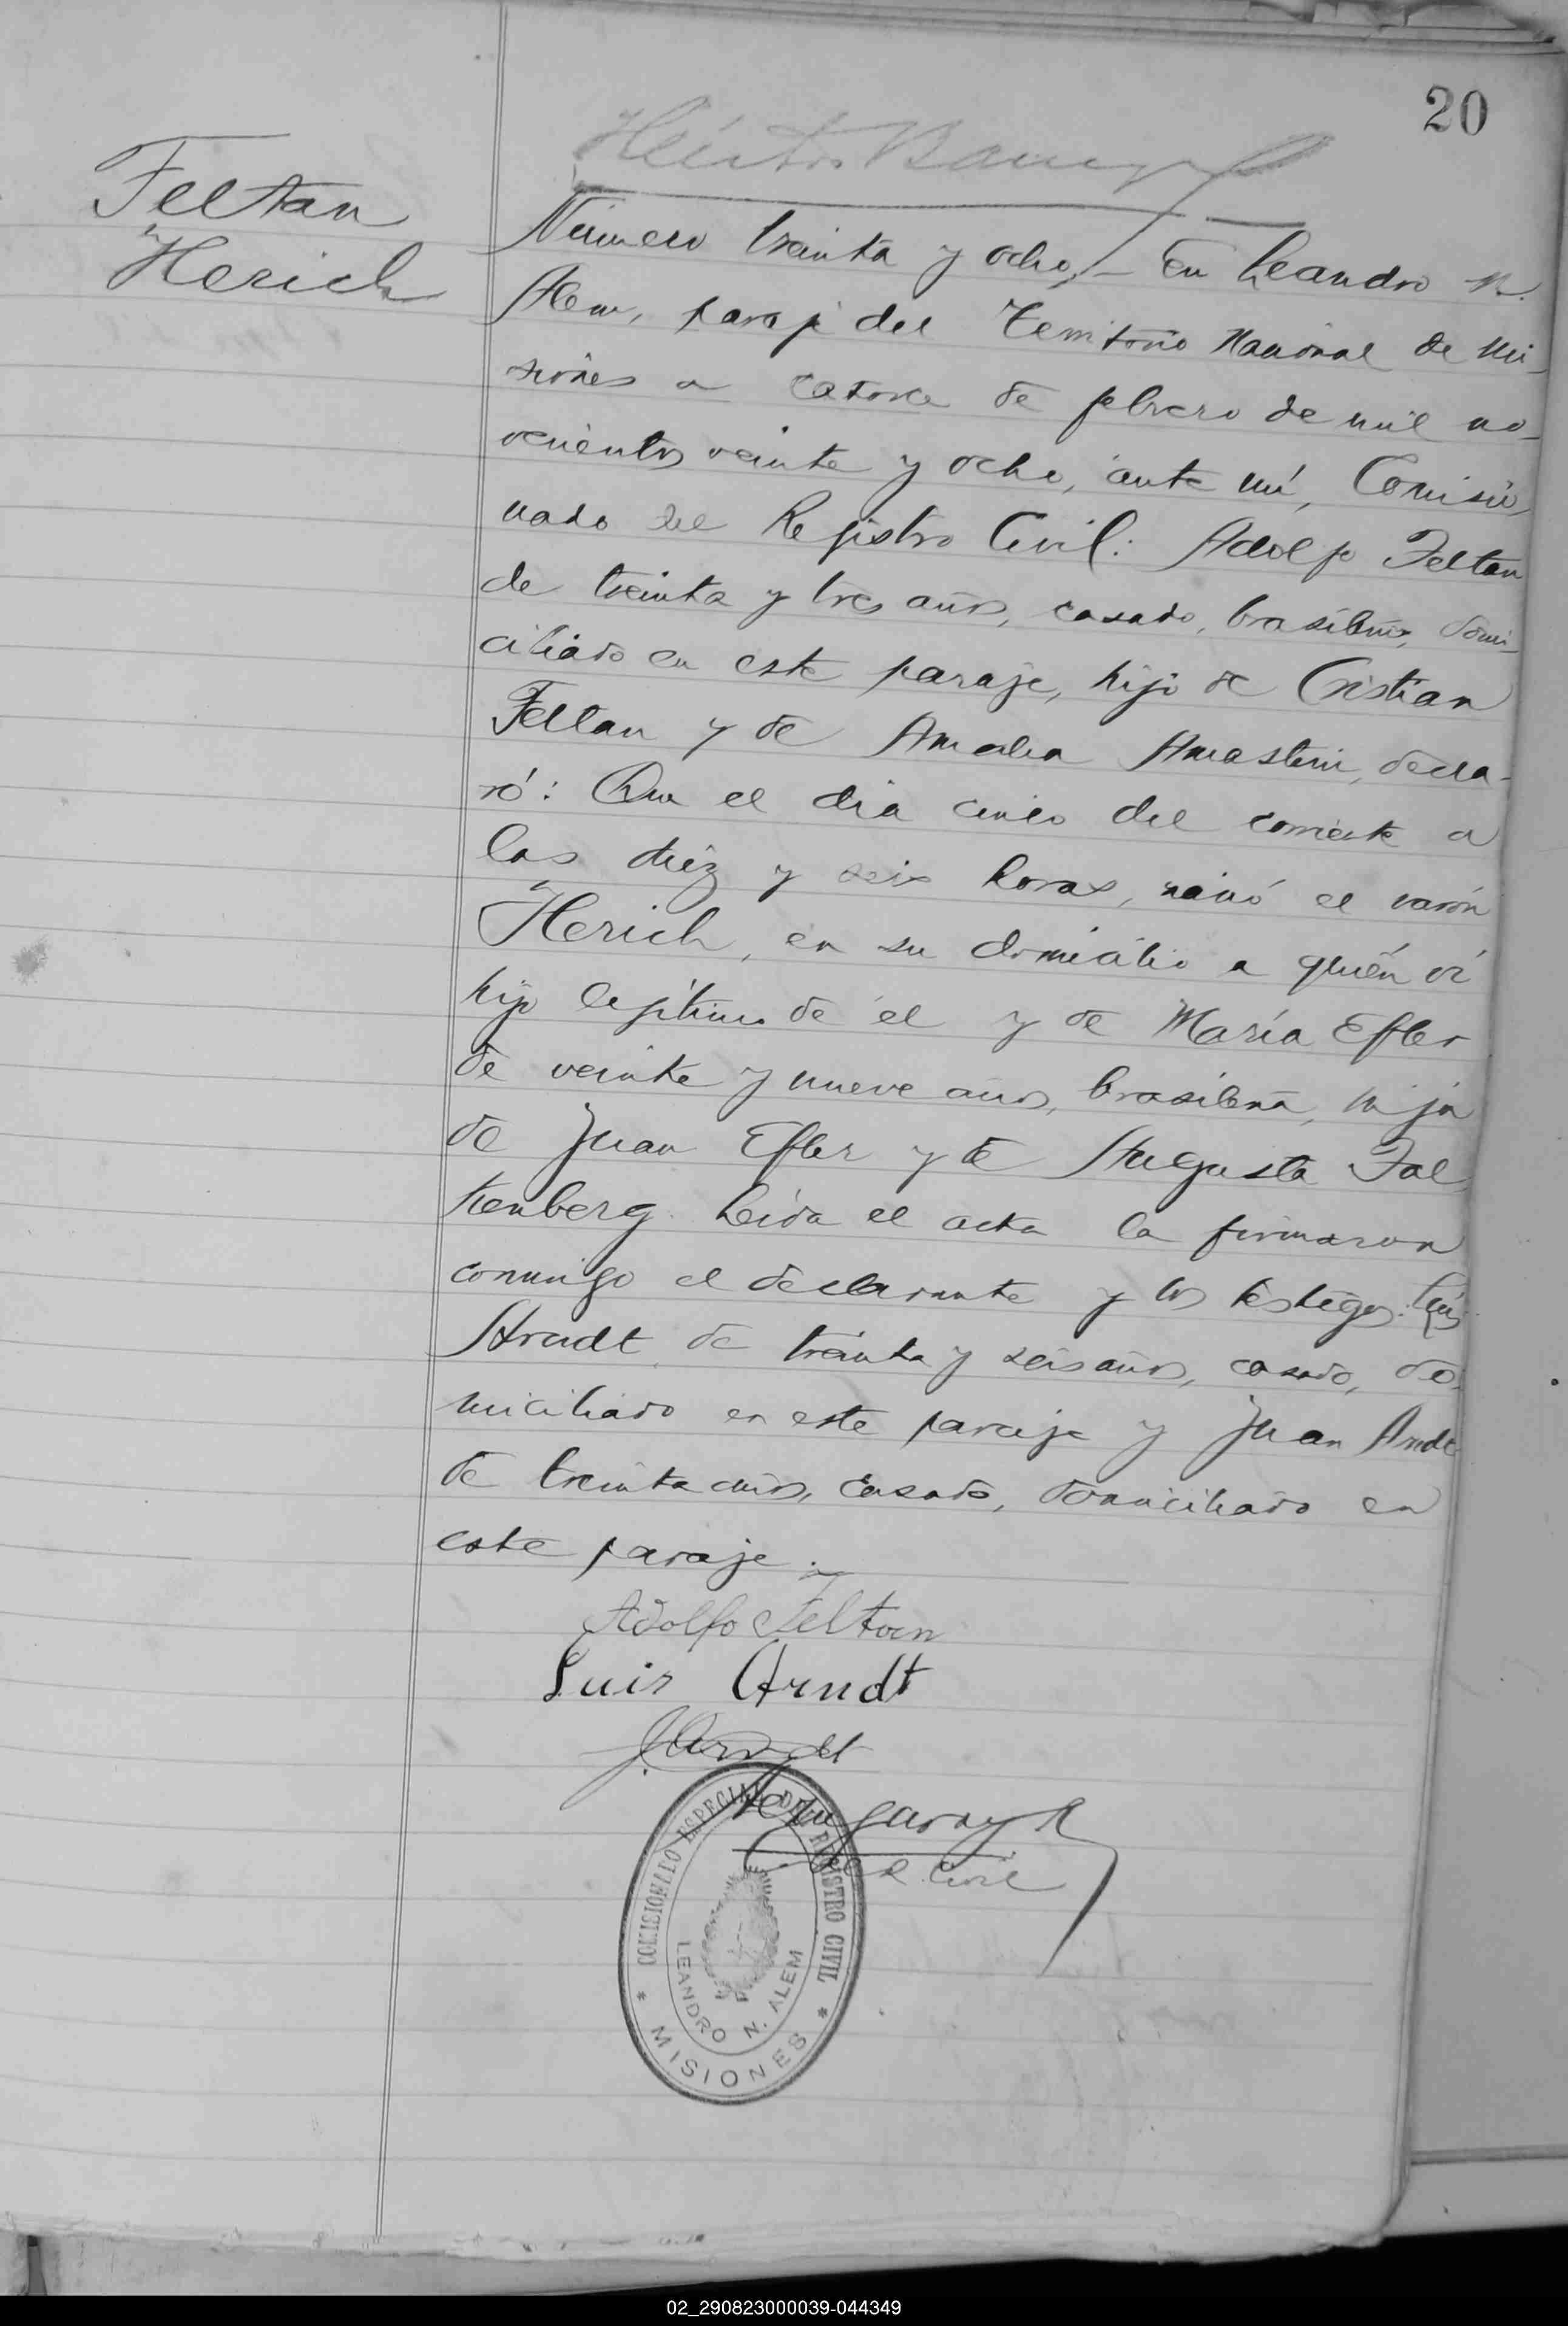 20
Feltan
Herich
Héctor
Número treinta y ocho,- En Leandro N.
Alem, paraje del Territorio Nacional de Mi-
siones a catorce de febrero de mil no-
vecientos veinte y ocho, ante mí, Comisio-
nado del Registro Civil: Adolfo Feltan
de treinta y tres años, casado, brasileño, domi-
ciliado en este paraje, hijo de Cristian
Feltan y de Amalia Amastein, decla-
ró: Que el día cinco del corriente a
las diez y seis horas, nació el varón
Herich, en su domicilio a quién ví
hijo legítimo de él y de María Efler
de veinte y nueve años, brasilena, hija
de Juan Efler y de Augusta Fal
kenberg. Leida el acta la firmaron
conmigo el declarante y los testigos: Luis
Arndt de treinta y seis años, casado, do-
miciliado en este paraje y Juan Arndt
de treinta años, casado, domiciliado en
este paraje.
Adolfo Feltan
Luis Arndt
J. Arndt
Garay
R. Civil
COMISIONADO ESPECIAL DEL REGISTRO CIVIL
LEANDRO N. ALEM
* MISIONES *
02_290823000039-044349